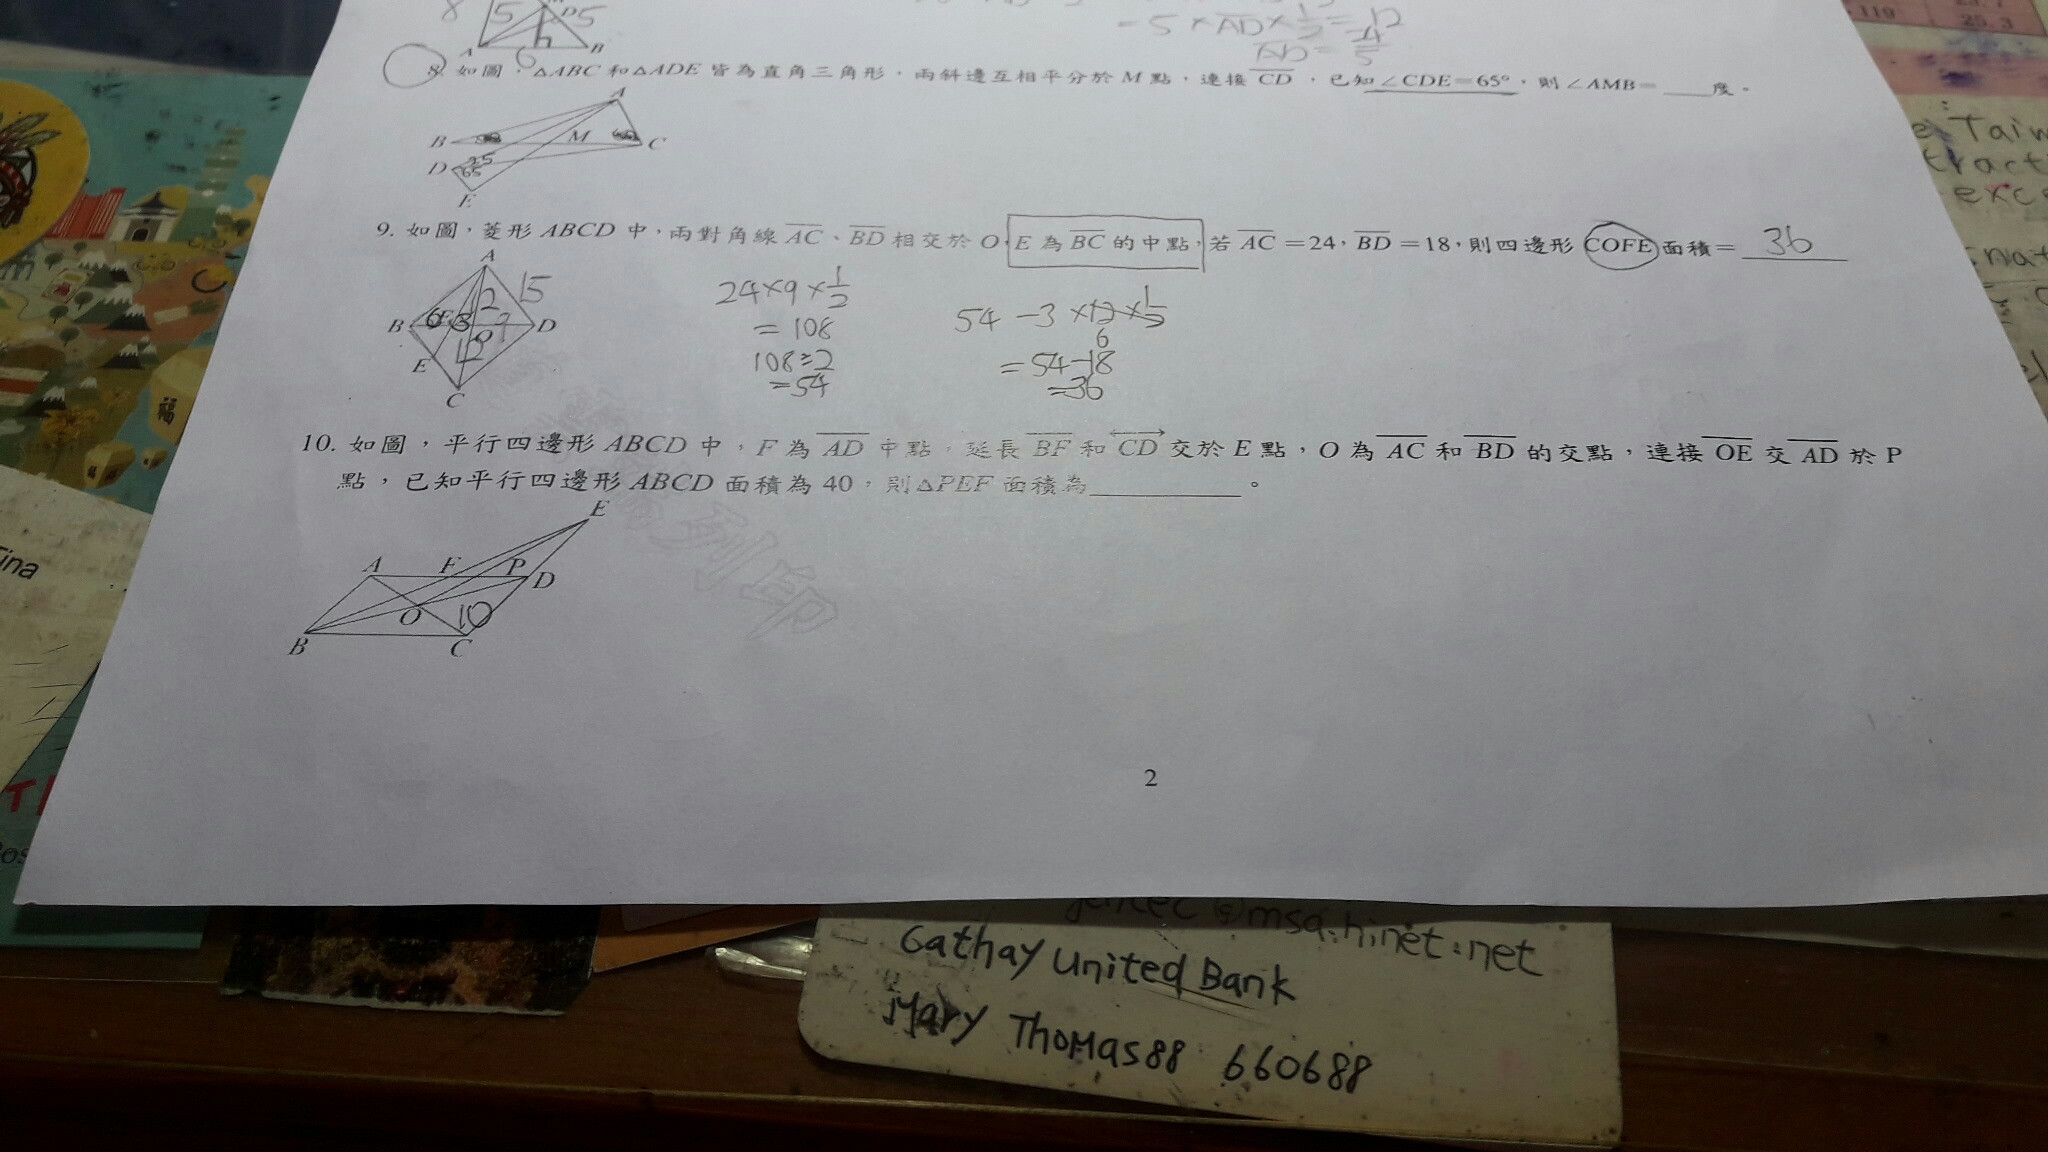 8 5 5
A 6 B
= 5 × AD × 1/2 = 12
AD =
119
25.3
8. 如圖，△ABC和△ADE皆為直角三角形，兩斜邊互相平分於M點，連接CD，已知∠CDE=65°，則∠AMB=____度。
A
B M C
D 25
65
E
9. 如圖，菱形ABCD中，兩對角線AC、BD相交於O，E為BC的中點，若AC=24，BD=18，則四邊形COFE面積=36
A
15
B 6 F 3 O 9 D
12
E
C
24×9×1/2
=108
108÷2
=54
54-3×12×1/2
6
=54-18
=36
10. 如圖，平行四邊形ABCD中，F為AD中點，延長BF和CD交於E點，O為AC和BD的交點，連接OE交AD於P
點，已知平行四邊形ABCD面積為40，則△PEF面積為__________。
E
A F P D
O 10
B C
列印
2
e Taiw
tract
exce
福
ina
@msa.hinet.net
Cathay United Bank
Mary Thomas88 660688